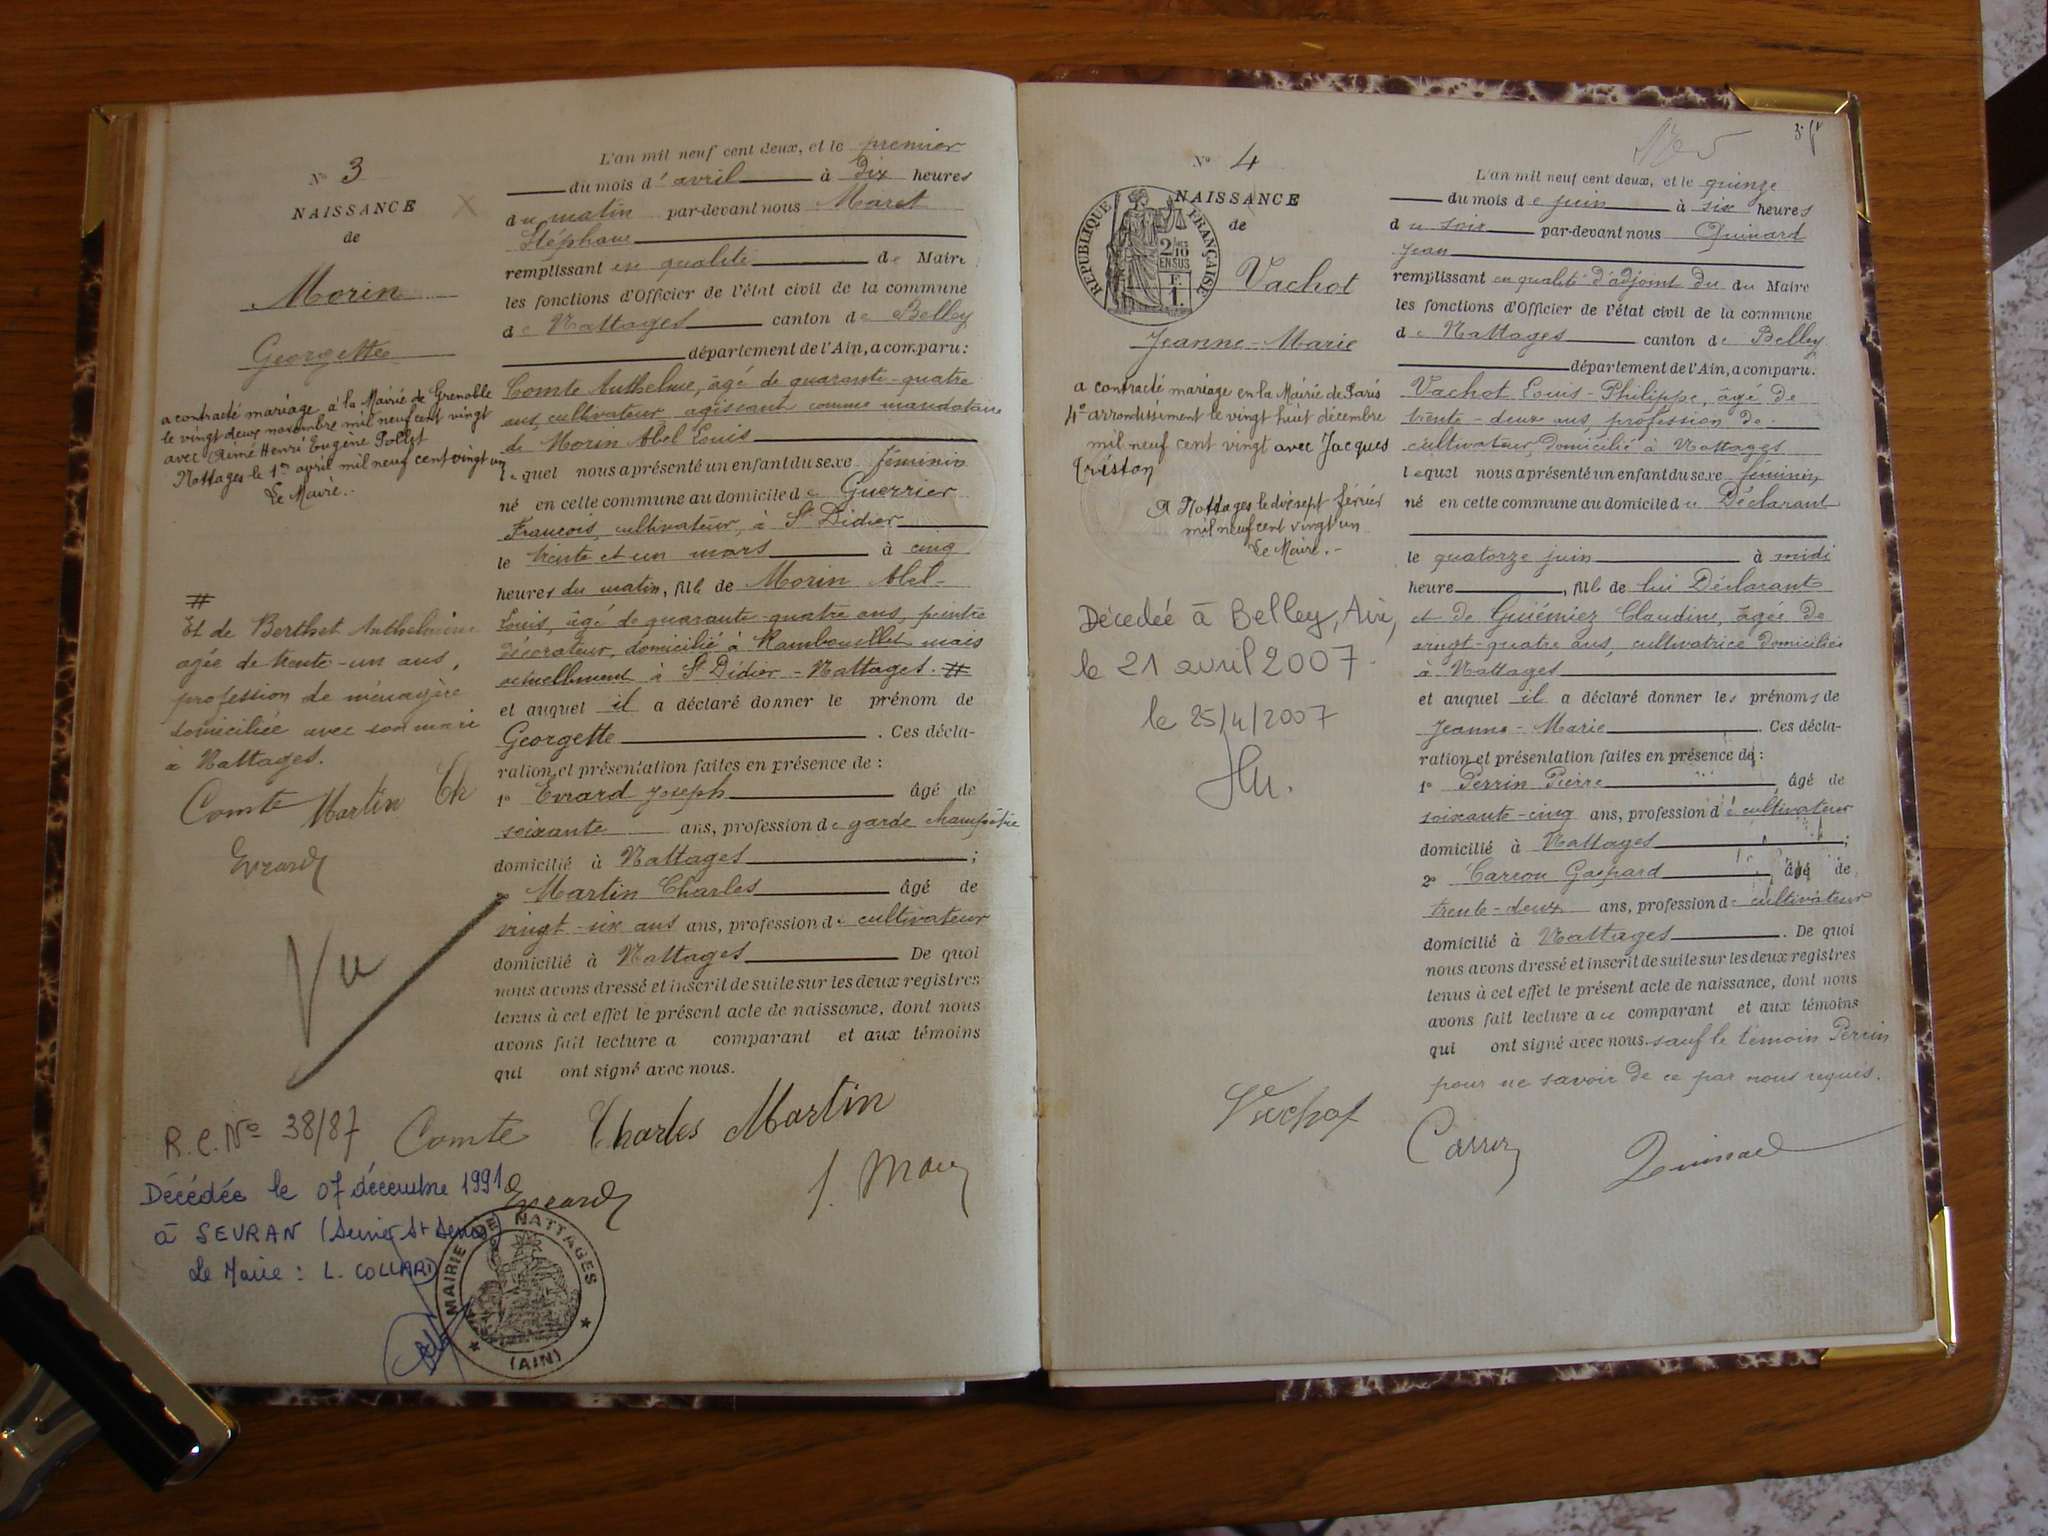 No 3
NAISSANCE
de
Morin
Georgette
a contracté mariage à la Mairie de Grenoble
le vingt deux novembre mil neuf cent vingt
avec Aimé Henri Eugène Pollet
Nattages le 1er avril mil neuf cent vingt un
Le Maire.-
#
Et de Berthet Anthelmine
agée de trente-un ans,
profession de ménagère
domiciliée avec son mari
à Nattages.
Comte Martin Ch
Evrard
Vu
R.C. No 38/87
Décédée le 07 décembre 1991
à SEVRAN (Seine St Denis)
Le Maire : L. COLLARD
L'an mil neuf cent deux, et le premier
du mois d'avril à dix heures
du matin par-devant nous Maret
Stéphane
remplissant en qualité de Maire
les fonctions d'Officier de l'état civil de la commune
de Nattages canton de Belley
département de l'Ain, a comparu:
Comte Anthelme, âgé de quarante-quatre
ans, cultivateur agissant comme mandataire
de Morin Abel Louis
lequel nous a présenté un enfant du sexe féminin
né en cette commune au domicile de Guerrier
François, cultivateur, à St Didier
le trente et un mars à cinq
heures du matin, fils de Morin Abel-
Louis, âgé de quarante-quatre ans, peintre
décorateur, domicilié à Rambouillet mais
actuellement à St Didier-Nattages. #
et auquel il a déclaré donner le prénom de
Georgette . Ces décla-
ration et présentation faites en présence de :
1o Evrard Joseph âgé de
soixante ans, profession de garde champêtre
domicilié à Nattages ;
Martin Charles âgé de
vingt-six ans ans, profession de cultivateur
domicilié à Nattages De quoi
nous avons dressé et inscrit de suite sur les deux registres
tenus à cet effet le présent acte de naissance, dont nous
avons fait lecture a comparant et aux témoins
qui ont signé avec nous.
Comte Charles Martin
Evrard
MAIRIE DE NATTAGES
(AIN)
No 4
NAISSANCE
de
RÉPUBLIQUE FRANÇAISE
2/10
EN SUS
F.
1.
Vachot
Jeanne-Marie
a contracté mariage en la Mairie de Paris
4e arrondissement le vingt huit décembre
mil neuf cent vingt avec Jacques
Criston
A Nattages le dix sept février
mil neuf cent vingt un
Le Maire.-
Décedée à Belley, Ain,
le 21 avril 2007.
le 25/4/2007
L'an mil neuf cent deux, et le quinze
du mois de juin à six heures
du soir par-devant nous Quinard
Jean
remplissant en qualité d'adjoint du du Maire
les fonctions d'Officier de l'état civil de la commune
de Nattages canton de Belley
département de l'Ain, a comparu:
Vachot Louis-Philippe, âgé de
trente-deux ans, profession de
cultivateur, domicilié à Nattages
lequel nous a présenté un enfant du sexe féminin,
né en cette commune au domicile du Déclarant
le quatorze juin à midi
heure , fils de lui Déclarant
et de Guiémiez Claudine, âgée de
vingt-quatre ans, cultivatrice domiciliée
à Nattages
et auquel il a déclaré donner les prénoms de
Jeanne-Marie . Ces décla-
ration et présentation faites en présence de :
1o Perrin Pierre , âgé de
soixante-cinq ans, profession de cultivateur
domicilié à Nattages ;
2o Carron Gaspard , âgé de
trente-deux ans, profession de cultivateur
domicilié à Nattages . De quoi
nous avons dressé et inscrit de suite sur les deux registres
tenus à cet effet le présent acte de naissance, dont nous
avons fait lecture au comparant et aux témoins
qui ont signé avec nous sauf le témoin Perrin
pour ne savoir de ce par nous requis.
Vachot